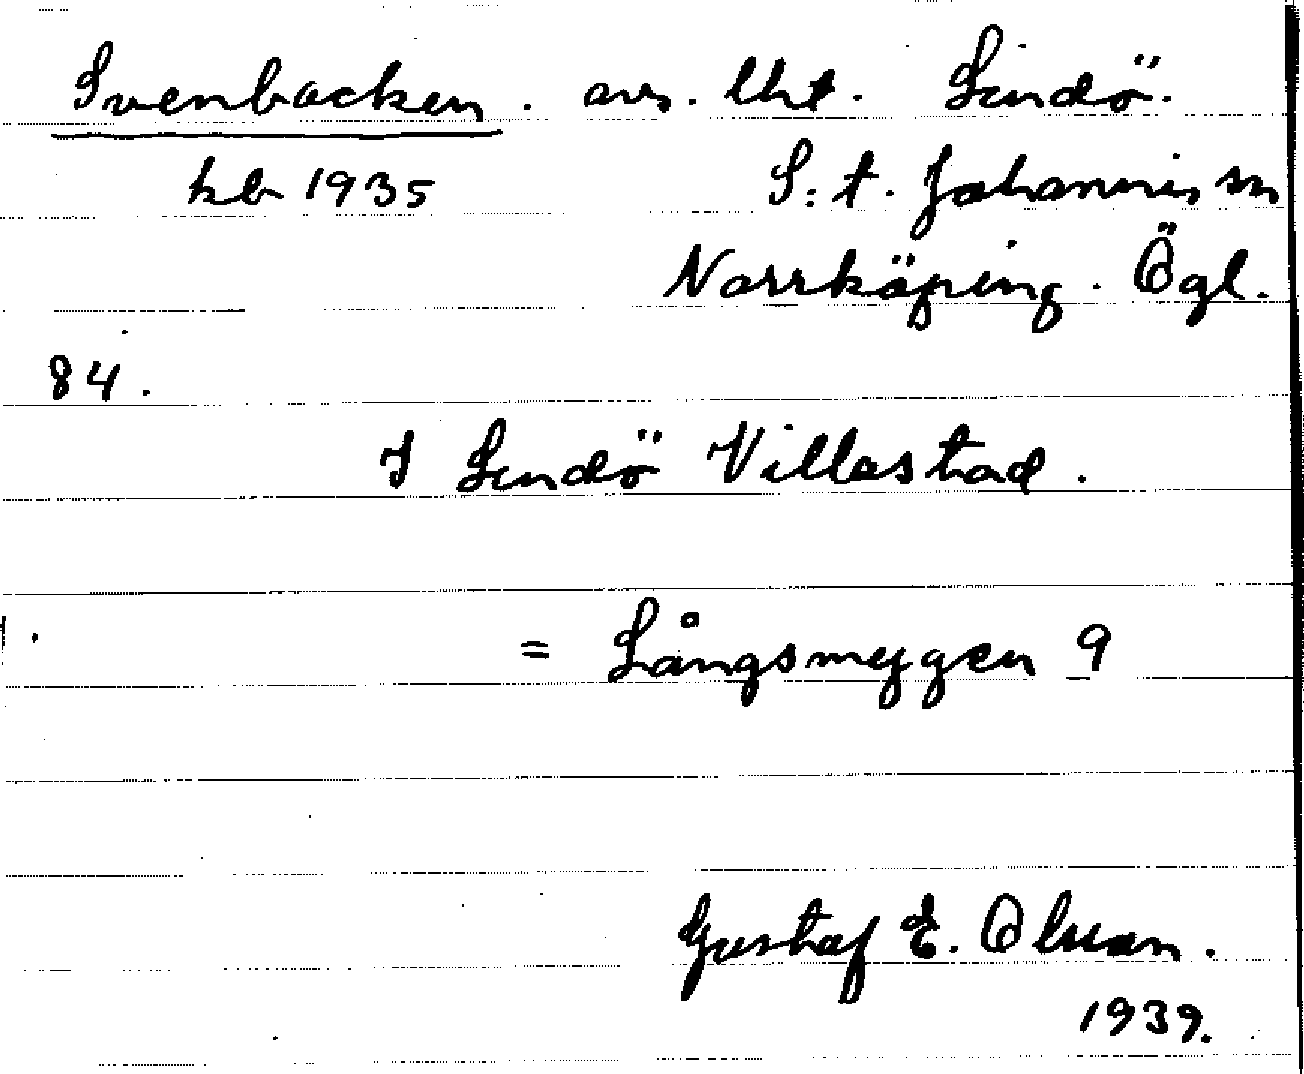 Svenbacken. avs. lht. Lindö.
kb 1935 S:t. Johannis sn
Norrköping. Ögl.
84.
I Lindö Villastad.
= Långsmygen 9
Gustaf E. Olsson.
1939.